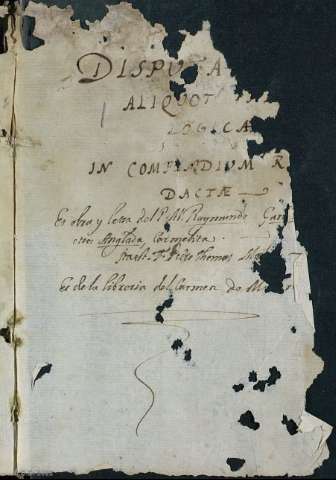 DISPUTA
ALIQUOT
LOGICÆ
IN COMPENDIUM R
DACTÆ
Es obra y letra del P. M. Raymundo
Anglada Carmelita.
Fr. Thomas
es de la libreria del Carmen de